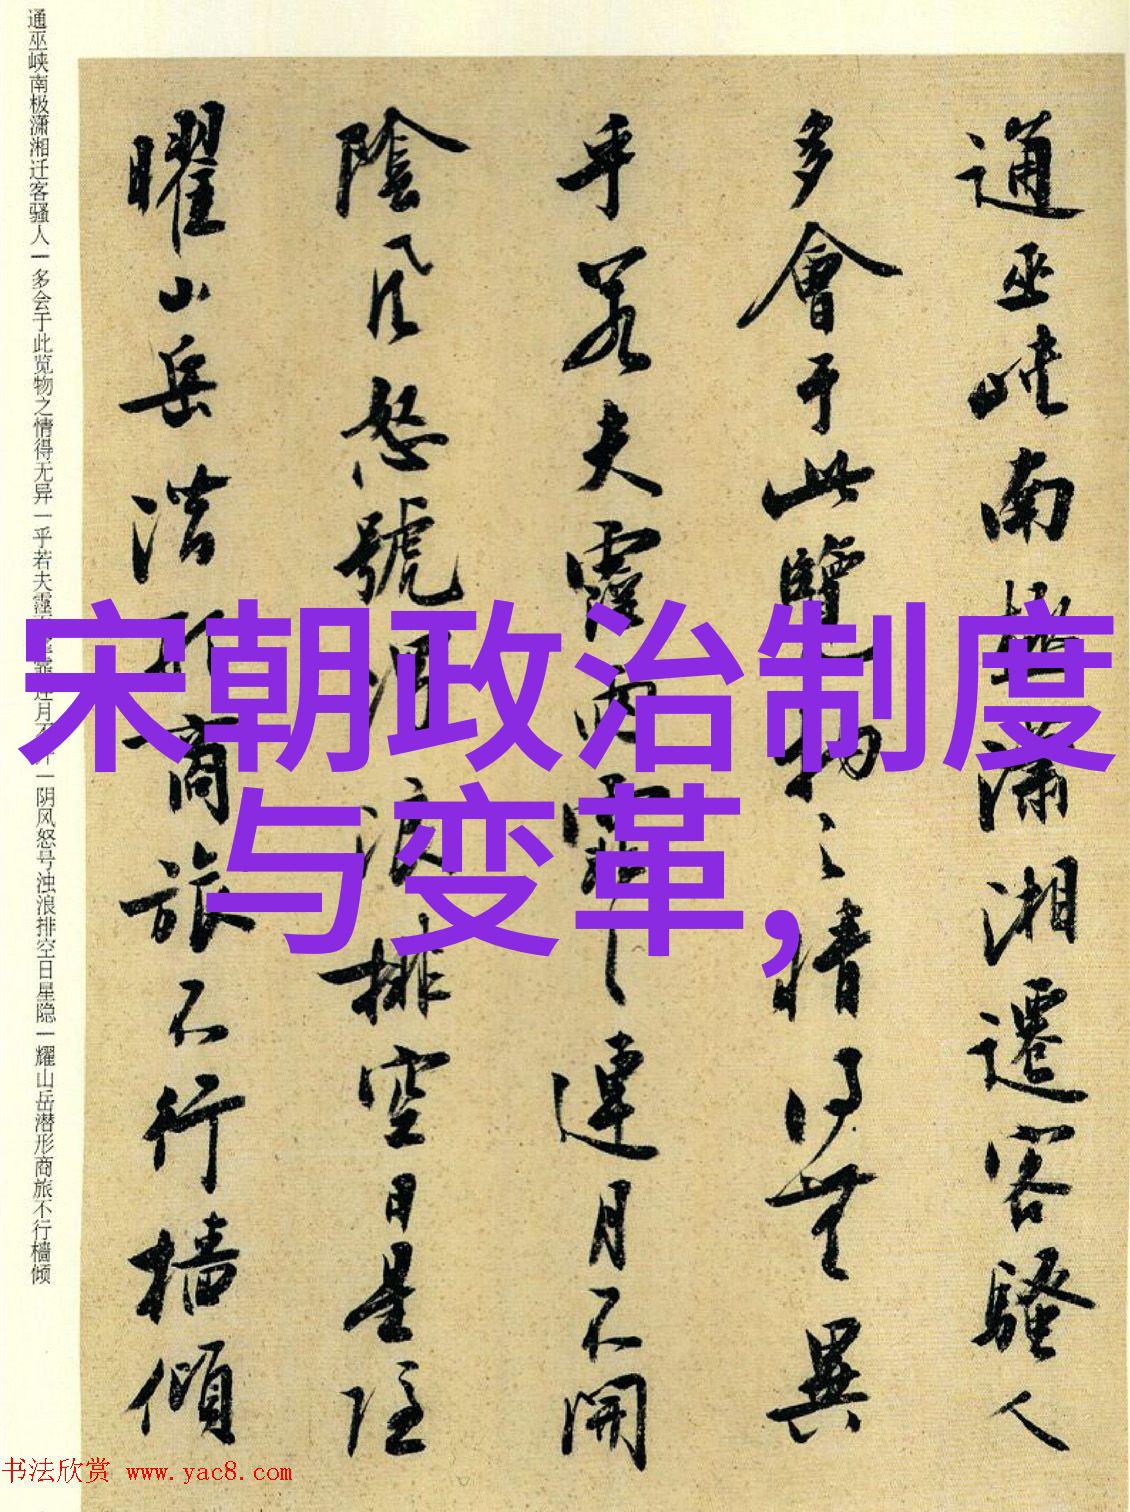 通巫峡南極瀟湘遷客騷人
多會于此覽物之情得無異
乎若夫霪雨霏霏連月不開
陰風怒號濁浪排空日星隱
曜山岳潛形商旅不行檣傾
通巫峡南极潇湘迁客骚人一多会于此览物之情得无异一乎若夫霪
连月不开一阴风怒号浊浪排空日星隐一耀山岳潜形商旅不行樯倾
宋朝政治制度
与变革,
书法欣赏 www.yac8.com